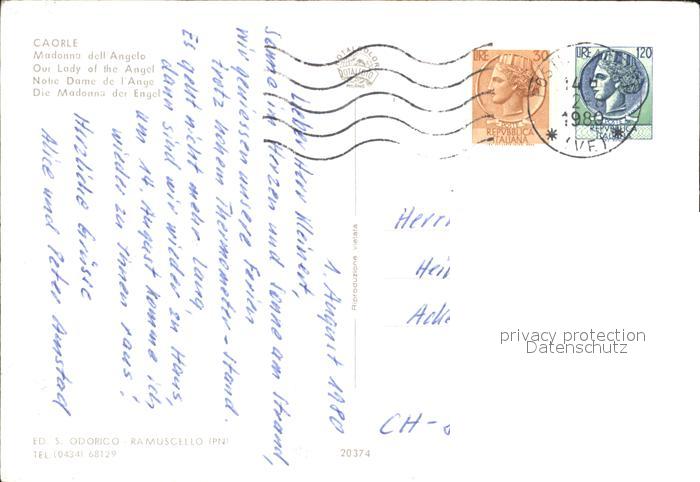 CAORLE
Madonna dell'Angelo
Our Lady of the Angel
Notre Dame de l'Ange
Die Madonna der Engel
1. August 1980
Lieber Herr Kleinert,
Sonne im Herzen und Sonne am Strand,
wir geniessen unsere Ferien
trotz hohem Thermometer-Stand.
Es geht nicht mehr lang,
dann sind wir wieder zu Haus,
am 14. August komme ich
wieder zu Ihnen raus!
Herzliche Grüsse
Alice und Peter Amstad
LIRE 30
REPVBBLICA
ITALIANA
LIRE 120
REPVBBLICA
ITALIANA
1980
(VE)
Riproduzione vietata
Herrn
Hei
Acke
CH-
privacy protection
Datenschutz
ED. S. ODORICO - RAMUSCELLO (PN)
TEL. (0434) 68129
20374